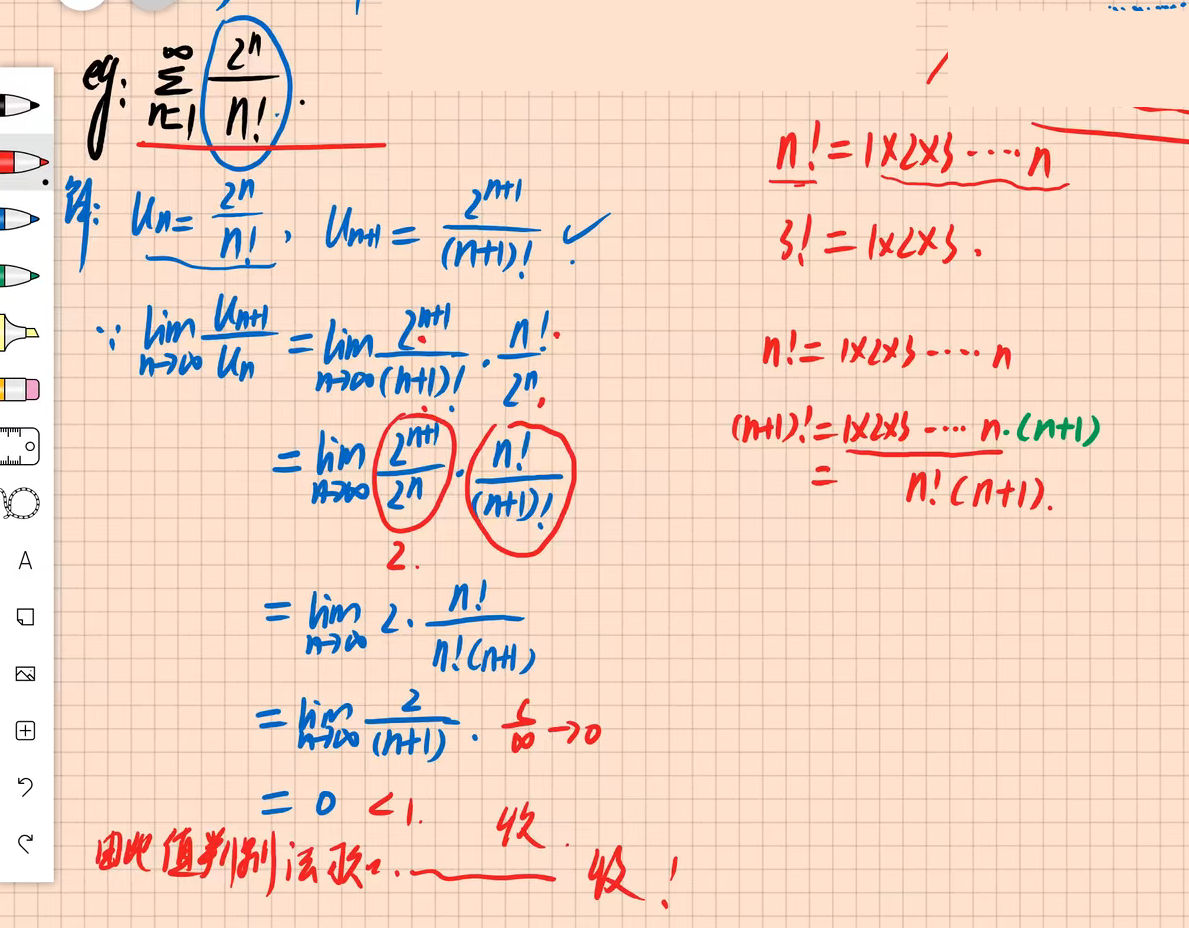 eg: ∑_{n=1}^{∞} 2^n/n! .
解: Un = 2^n/n! , Un+1 = 2^{n+1}/(n+1)! ✓
∵ lim_{n→∞} Un+1/Un = lim_{n→∞} 2^{n+1}/(n+1)! · n!/2^n
= lim_{n→∞} 2^{n+1}/2^n · n!/(n+1)!
2.
= lim_{n→∞} 2 · n!/n!(n+1)
= lim_{n→∞} 2/(n+1) . C/∞ → 0
= 0 < 1.
收.
由比值判别法 ... 收!
n! = 1×2×3 ···· n
3! = 1×2×3.
n! = 1×2×3 ···· n
(n+1)! = 1×2×3 ···· n·(n+1)
= n!(n+1).
A